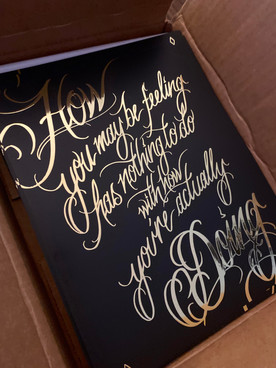 How
you may be feeling
has nothing to do
with how
you're actually
Doing